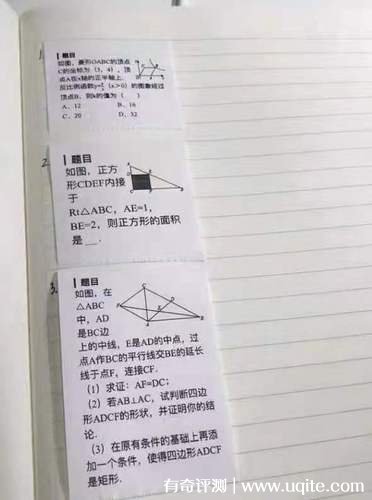 1.
题目
如图，菱形OABC的顶点
C的坐标为（3，4），顶
点A在x轴的正半轴上.
反比例函数y=k/x（x>0）的图象经过
顶点B，则k的值为（ ）
A、12 B、16
C、20 D、32
2.
题目
如图，正方
形CDEF内接
于
Rt△ABC，AE=1，
BE=2，则正方形的面积
是__.
3.
题目
如图，在
△ABC
中，AD
是BC边
上的中线，E是AD的中点，过
点A作BC的平行线交BE的延长
线于点F，连接CF.
（1）求证：AF=DC；
（2）若AB⊥AC，试判断四边
形ADCF的形状，并证明你的结
论.
（3）在原有条件的基础上再添
加一个条件，使得四边形ADCF
是矩形.
有奇评测 | www.uqite.com